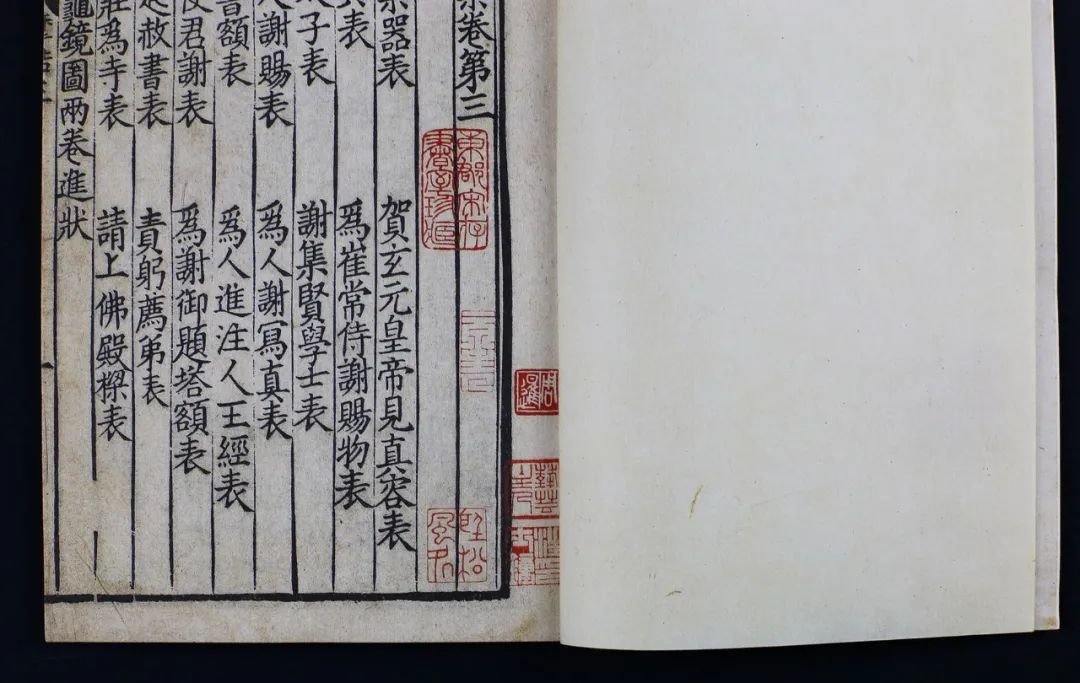 卷第三
器表 賀玄元皇帝見真容表
表 爲崔常侍謝賜物表
子表 謝集賢學士表
人謝賜表 爲人謝寫真表
書額表 爲人進注人王經表
使君謝表 爲謝御題塔額表
赦書表 責躬薦弟表
莊爲寺表 請上佛殿樑表
龜鏡圖兩卷進狀
東郡宋存
書室珍藏
周暹